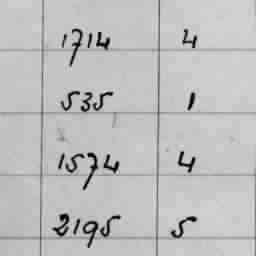 1714 4
535 1
1574 4
2195 5